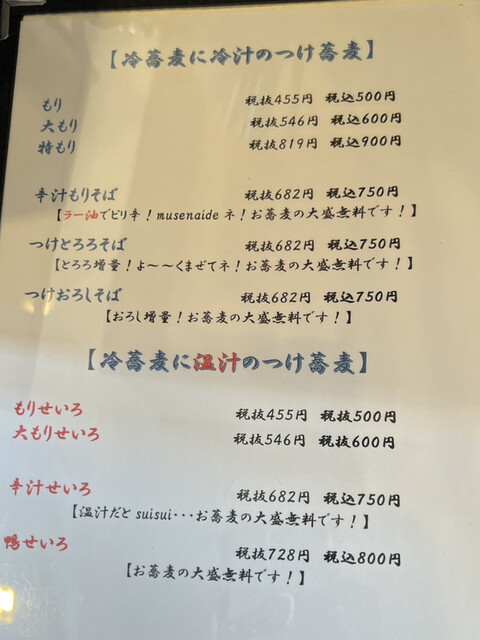 【冷蕎麦に冷汁のつけ蕎麦】
もり 税抜455円 税込500円
大もり 税抜546円 税込600円
特もり 税抜819円 税込900円
辛汁もりそば 税抜682円 税込750円
【ラー油でピリ辛！musenaideネ！お蕎麦の大盛無料です！】
つけとろろそば 税抜682円 税込750円
【とろろ増量！よ～～くまぜてネ！お蕎麦の大盛無料です！】
つけおろしそば 税抜682円 税込750円
【おろし増量！お蕎麦の大盛無料です！】
【冷蕎麦に温汁のつけ蕎麦】
もりせいろ 税抜455円 税抜500円
大もりせいろ 税抜546円 税抜600円
辛汁せいろ 税抜682円 税込750円
【温汁だとsuisui･･･お蕎麦の大盛無料です！】
鴨せいろ 税抜728円 税込800円
【お蕎麦の大盛無料です！】